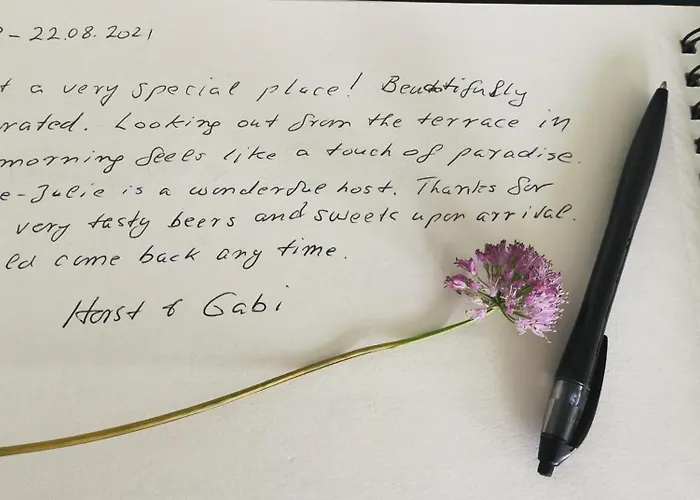 - 22.08.2021
a very special place! Beautifully
rated. Looking out from the terrace in
morning feels like a touch of paradise.
e-Julie is a wonderful host. Thanks for
very tasty beers and sweets upon arrival.
ld come back any time.
Horst & Gabi